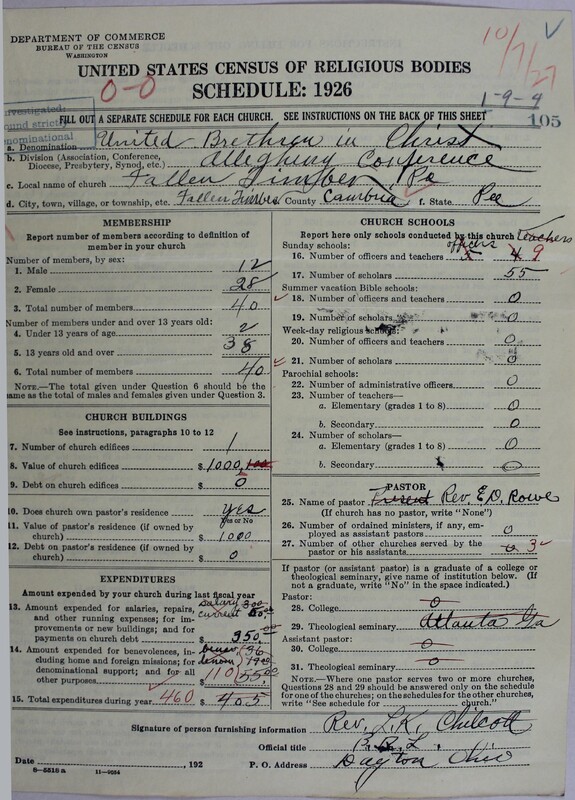 DEPARTMENT OF COMMERCE
BUREAU OF THE CENSUS
WASHINGTON
10/7/27
V
UNITED STATES CENSUS OF RELIGIOUS BODIES
0-0
SCHEDULE: 1926
1-9-4
FILL OUT A SEPARATE SCHEDULE FOR EACH CHURCH. SEE INSTRUCTIONS ON THE BACK OF THIS SHEET
105
a. Denomination United Brethren in Christ
b. Division (Association, Conference, Diocese, Presbytery, Synod, etc.) Allegheny Conference
c. Local name of church Fallen Timber Pa
d. City, town, village, or township, etc. Fallen Timber County Cambria f. State Pa
MEMBERSHIP
Report number of members according to definition of
member in your church
Number of members, by sex:
1. Male 12
2. Female 28
3. Total number of members 40
Number of members under and over 13 years old:
4. Under 13 years of age 2
5. 13 years old and over 38
6. Total number of members 40
NOTE.—The total given under Question 6 should be the
same as the total of males and females given under Question 3.
CHURCH BUILDINGS
See instructions, paragraphs 10 to 12
7. Number of church edifices 1
8. Value of church edifices $ 1000
9. Debt on church edifices $ 0
10. Does church own pastor's residence yes
Yes or No
11. Value of pastor's residence (if owned by
church) $ 1000
12. Debt on pastor's residence (if owned by
church) $ 0
EXPENDITURES
Amount expended by your church during last fiscal year
13. Amount expended for salaries, repairs,
and other running expenses; for im-
provements or new buildings; and for
payments on church debt $ 350.00
salary 300
current 50.
14. Amount expended for benevolences, in-
cluding home and foreign missions; for
denominational support; and for all
other purposes $ 110 55.00
15. Total expenditures during year 460 $ 405
Date , 192
8—5518a 11—9054
CHURCH SCHOOLS
Report here only schools conducted by this church
officers teachers
Sunday schools:
16. Number of officers and teachers 5 4 9
17. Number of scholars 55
Summer vacation Bible schools:
18. Number of officers and teachers 0
19. Number of scholars 0
Week-day religious schools:
20. Number of officers and teachers 0
21. Number of scholars 0
Parochial schools:
22. Number of administrative officers 0
23. Number of teachers—
a. Elementary (grades 1 to 8) 0
b. Secondary 0
24. Number of scholars—
a. Elementary (grades 1 to 8) 0
b. Secondary 0
PASTOR
25. Name of pastor Present Rev. E. D. Rowe
(If church has no pastor, write "None")
26. Number of ordained ministers, if any, em-
ployed as assistant pastors 0
27. Number of other churches served by the
pastor or his assistants 0 3
If pastor (or assistant pastor) is a graduate of a college or
theological seminary, give name of institution below. (If
not a graduate, write "No" in the space indicated.)
Pastor:
28. College 0
29. Theological seminary Atlanta Ga
Assistant pastor:
30. College 0
31. Theological seminary 0
NOTE.—Where one pastor serves two or more churches,
Questions 28 and 29 should be answered only on the schedule
for one of the churches; on the schedules for the other churches,
write "See schedule for church."
Signature of person furnishing information Rev. L. K. Chilcott
Official title
P. O. Address Dayton Ohio